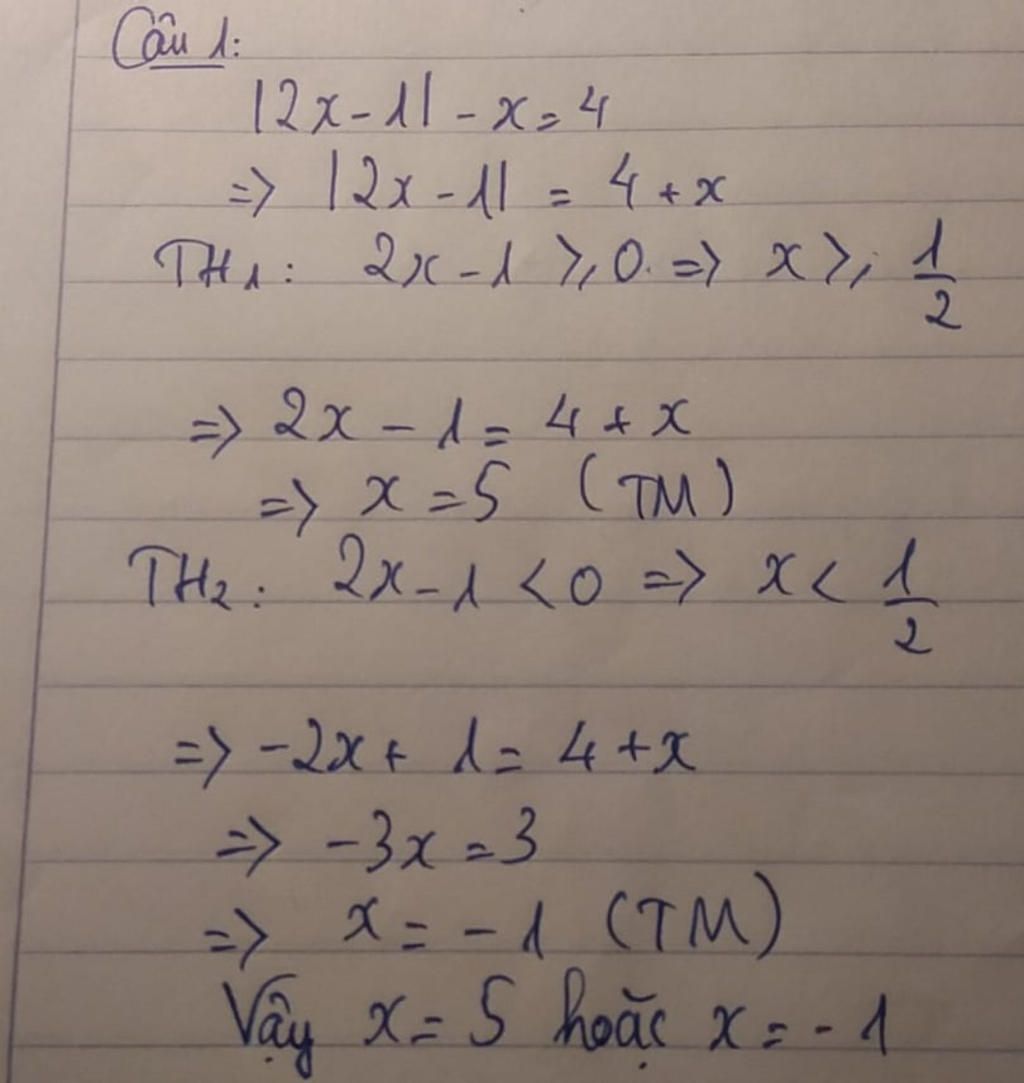 Câu 1:
|2x-1| - x = 4
=> |2x-1| = 4 + x
TH1: 2x-1 ⩾ 0. => x ⩾ 1/2
=> 2x - 1 = 4 + x
=> x = 5 (TM)
TH2: 2x-1 < 0 => x < 1/2
=> -2x + 1 = 4 + x
=> -3x = 3
=> x = -1 (TM)
Vậy x = 5 hoặc x = -1